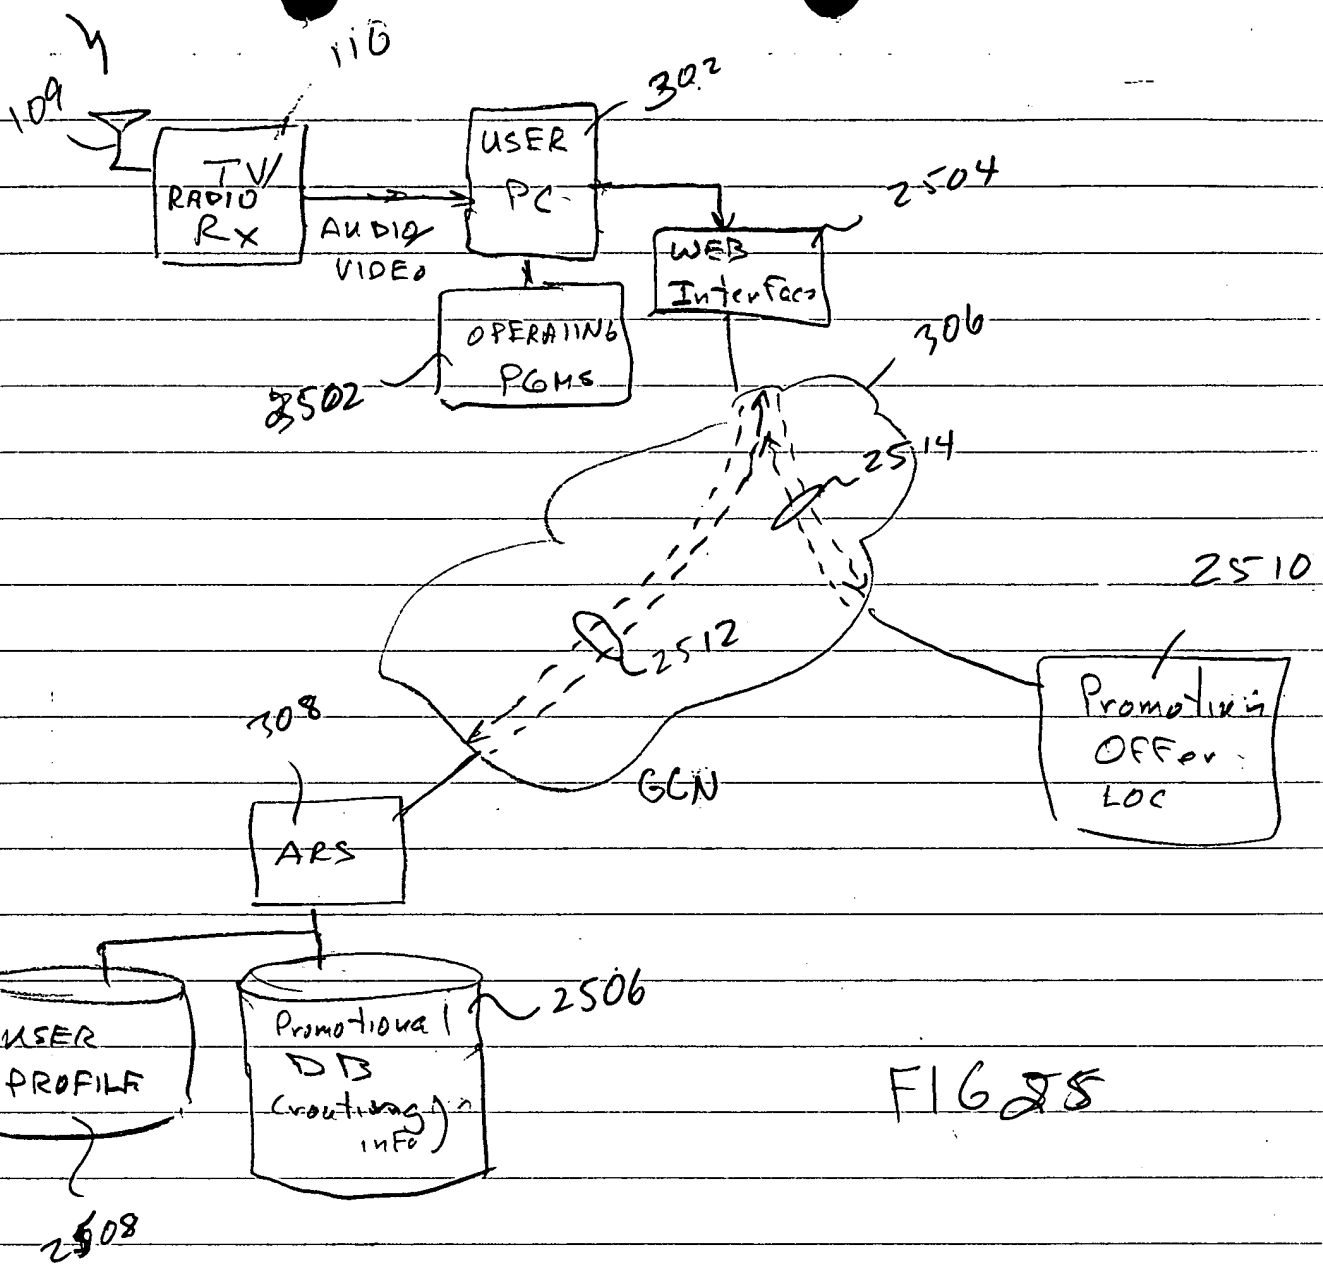 110
109
302
TV/
RADIO
Rx
AUDIO/
VIDEO
USER
PC
2504
WEB
Interface
OPERATING
PGMS
2502
306
2514
2510
2512
Promotion
OFFer
LOC
308
GCN
ARS
2506
USER
PROFILE
Promotional
DB
(routing
info)
FIG 25
2508